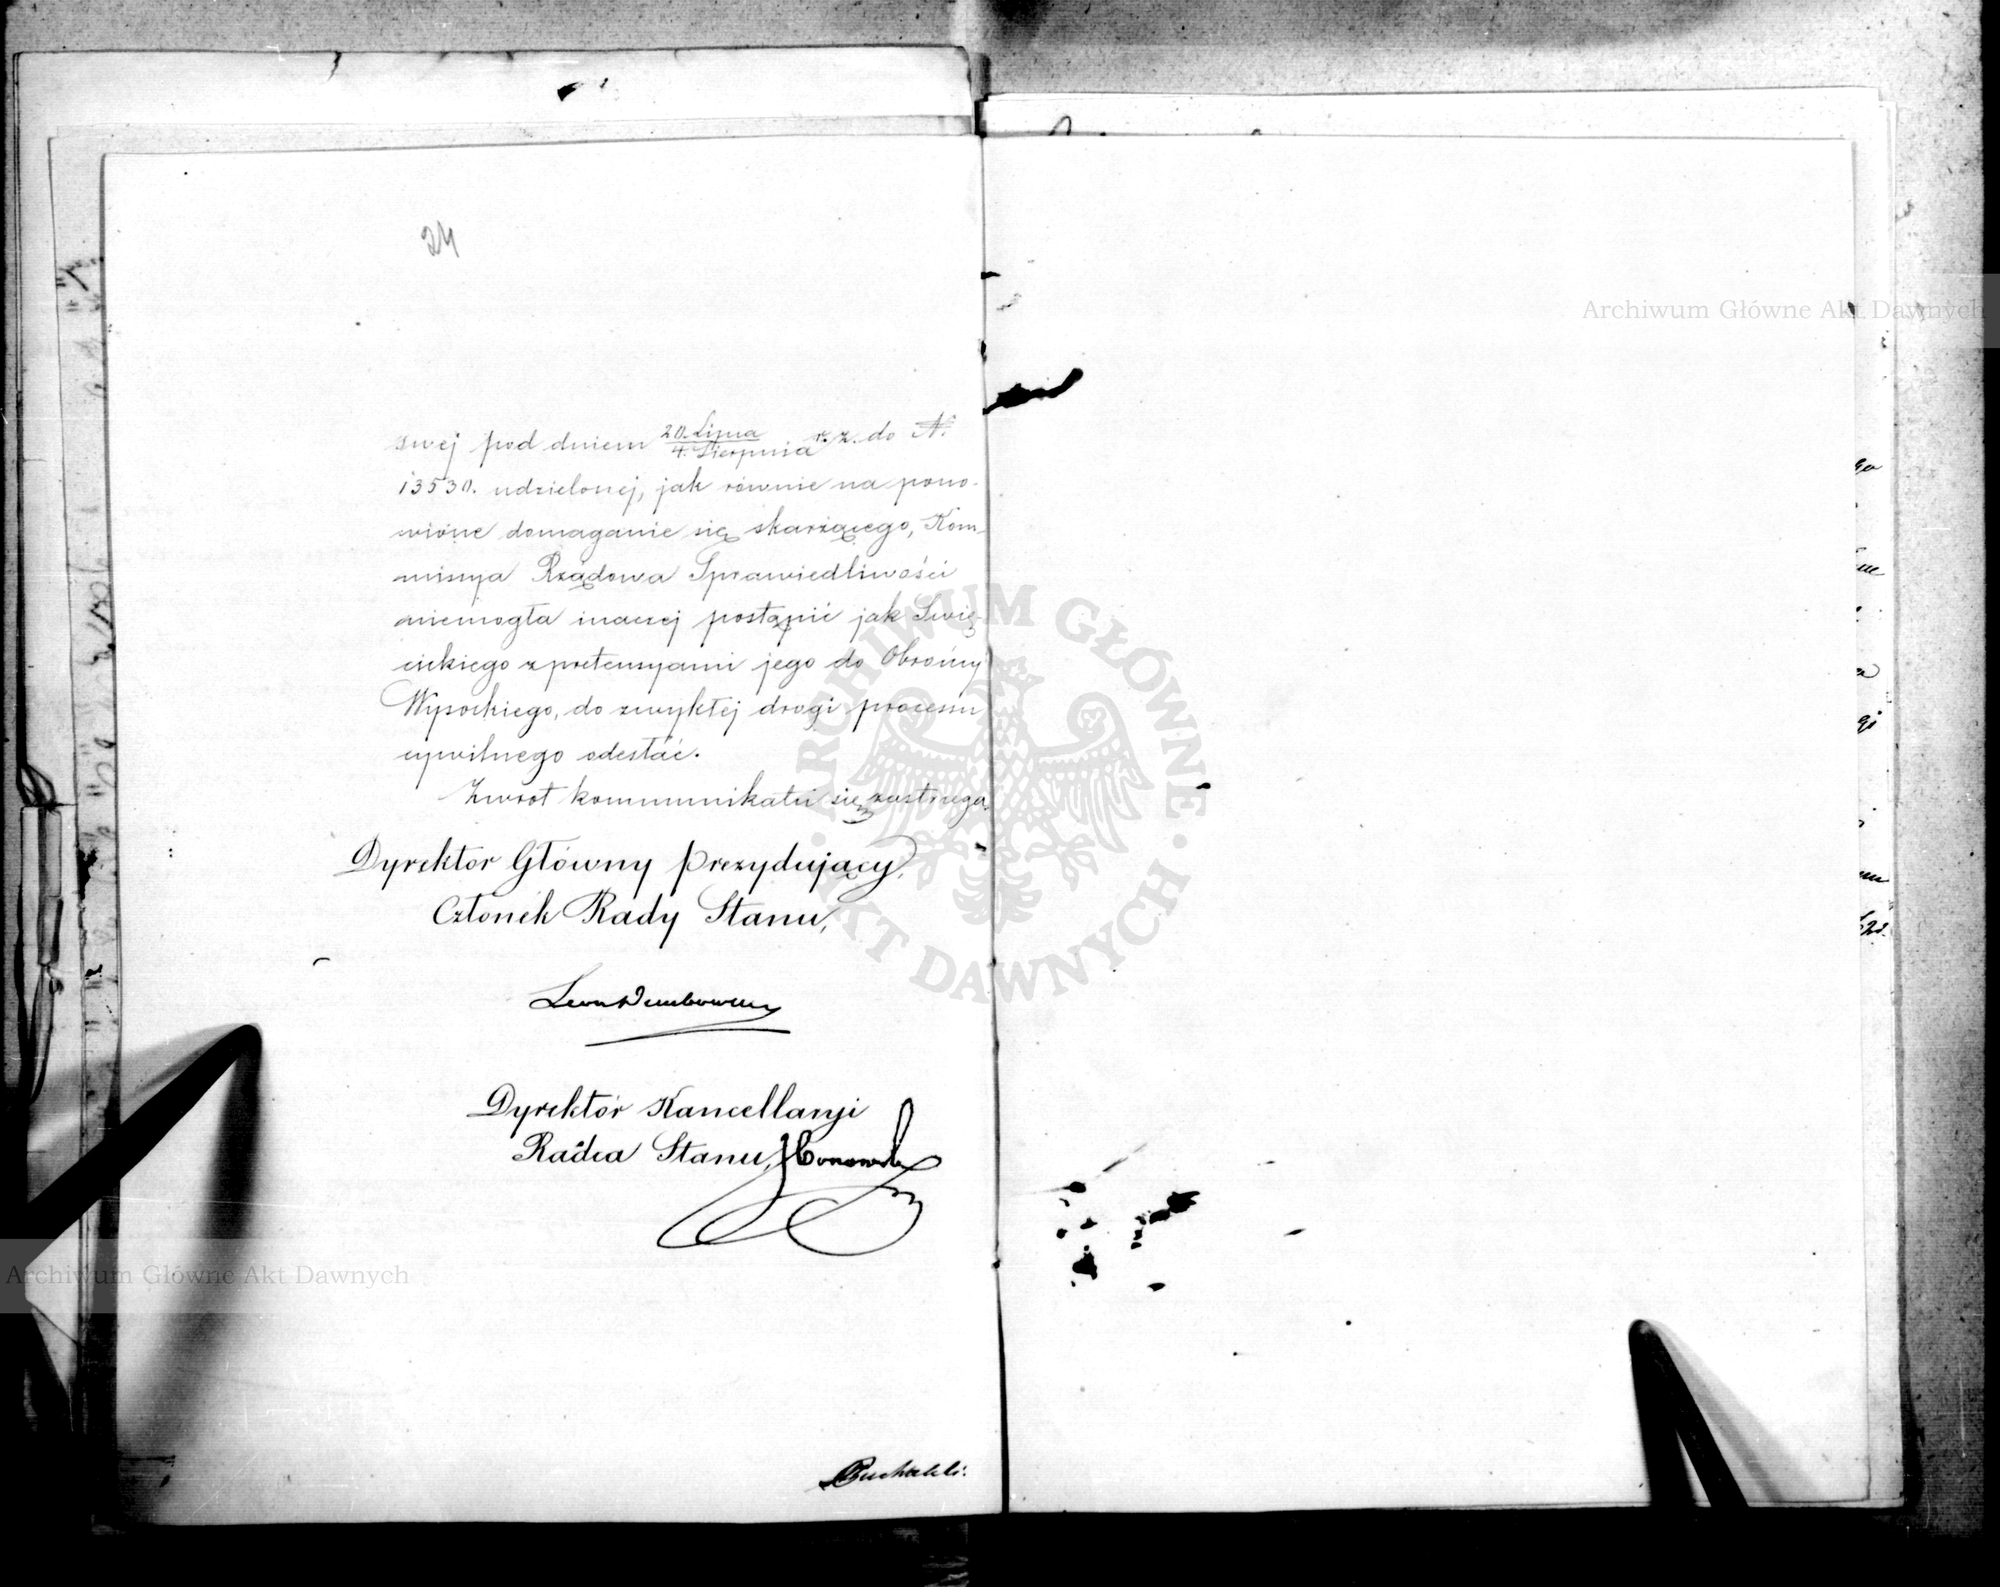 24
swej pod dniem 20. Lipca / 4. Sierpnia r. z. do N.
13530. udzielonej, jak równie na pono-
wione domaganie się skarżącego, Kom-
missya Rządowa Sprawiedliwości
niemogła inaczej postąpić jak Świę-
cickiego z pretensyami jego do Obrońcy
Wysockiego, do zwykłej drogi processu
cywilnego odesłać.
Zwrot kommunikatu się zastrzega.
Dyrektor Główny Prezydujący,
Członek Rady Stanu,
Leon Dembowski
Dyrektór Kancellaryi
Radca Stanu,
Archiwum Główne Akt Dawnych
Archiwum Główne Akt Dawnych
ARCHIWUM GŁÓWNE AKT DAWNYCH